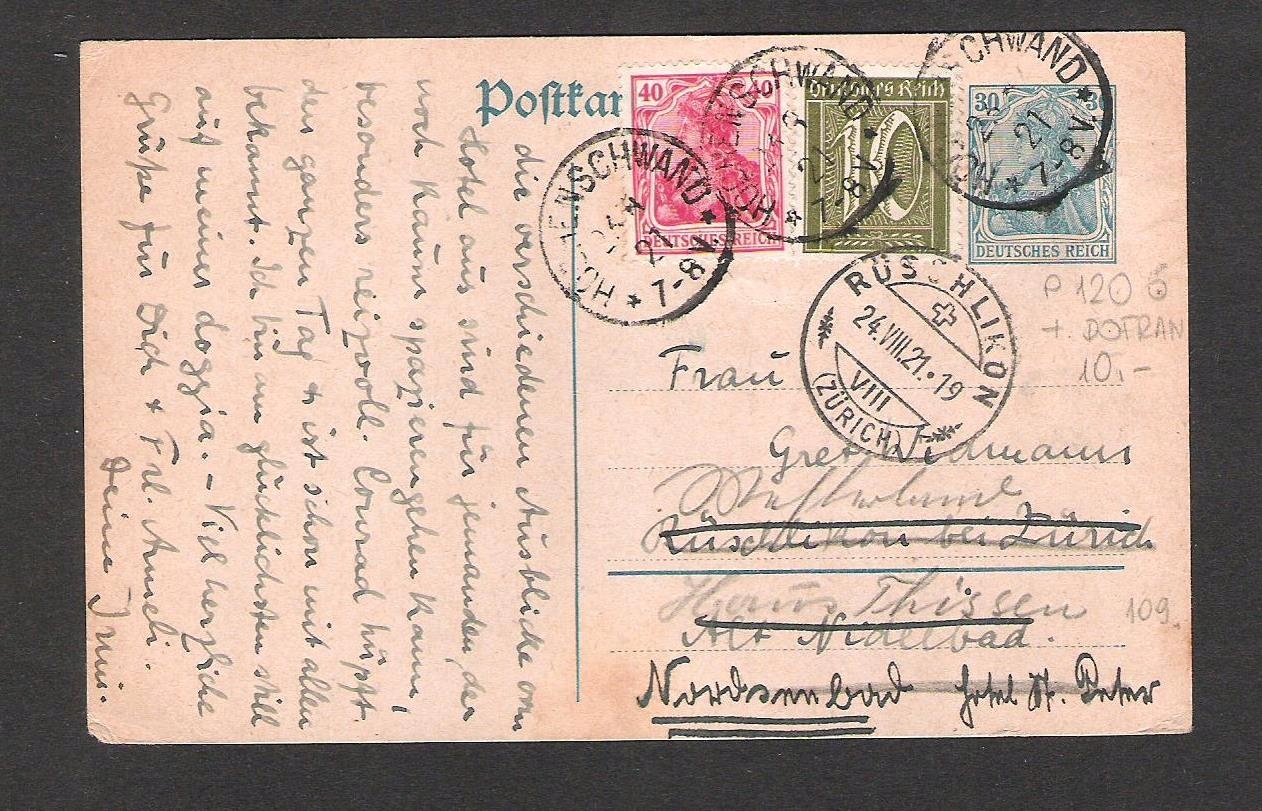 Postkar
40 40
DEUTSCHES REICH
Deutsches Reich
30 30
DEUTSCHES REICH
HÖCHENSCHWAND
21
7-8V.
HÖCHENSCHWAND
21
7-8V.
SCHWAND
21
7-8V.
RÜSCHLIKON
24.VIII.21.19
VIII
(ZÜRICH)
P 120
+ DOFRAN
10,-
109.
Frau
Gret Widmann
Rüschlikon bei Zürich
Haus Thissen
Alt Nidelbad.
Nordseebad Hotel St. Peter
die verschiedenen Ausblicke vom
Hotel aus sind für jemanden, der
noch kaum spazierengehen kann,
besonders reizvoll. Conrad hüpft
den ganzen Tag & ist schon mit allen
bekannt. Ich bin am glücklichsten still
auf meiner Loggia. – Viel herzliche
Grüße für Dich & Frl. Anneli.
Deine